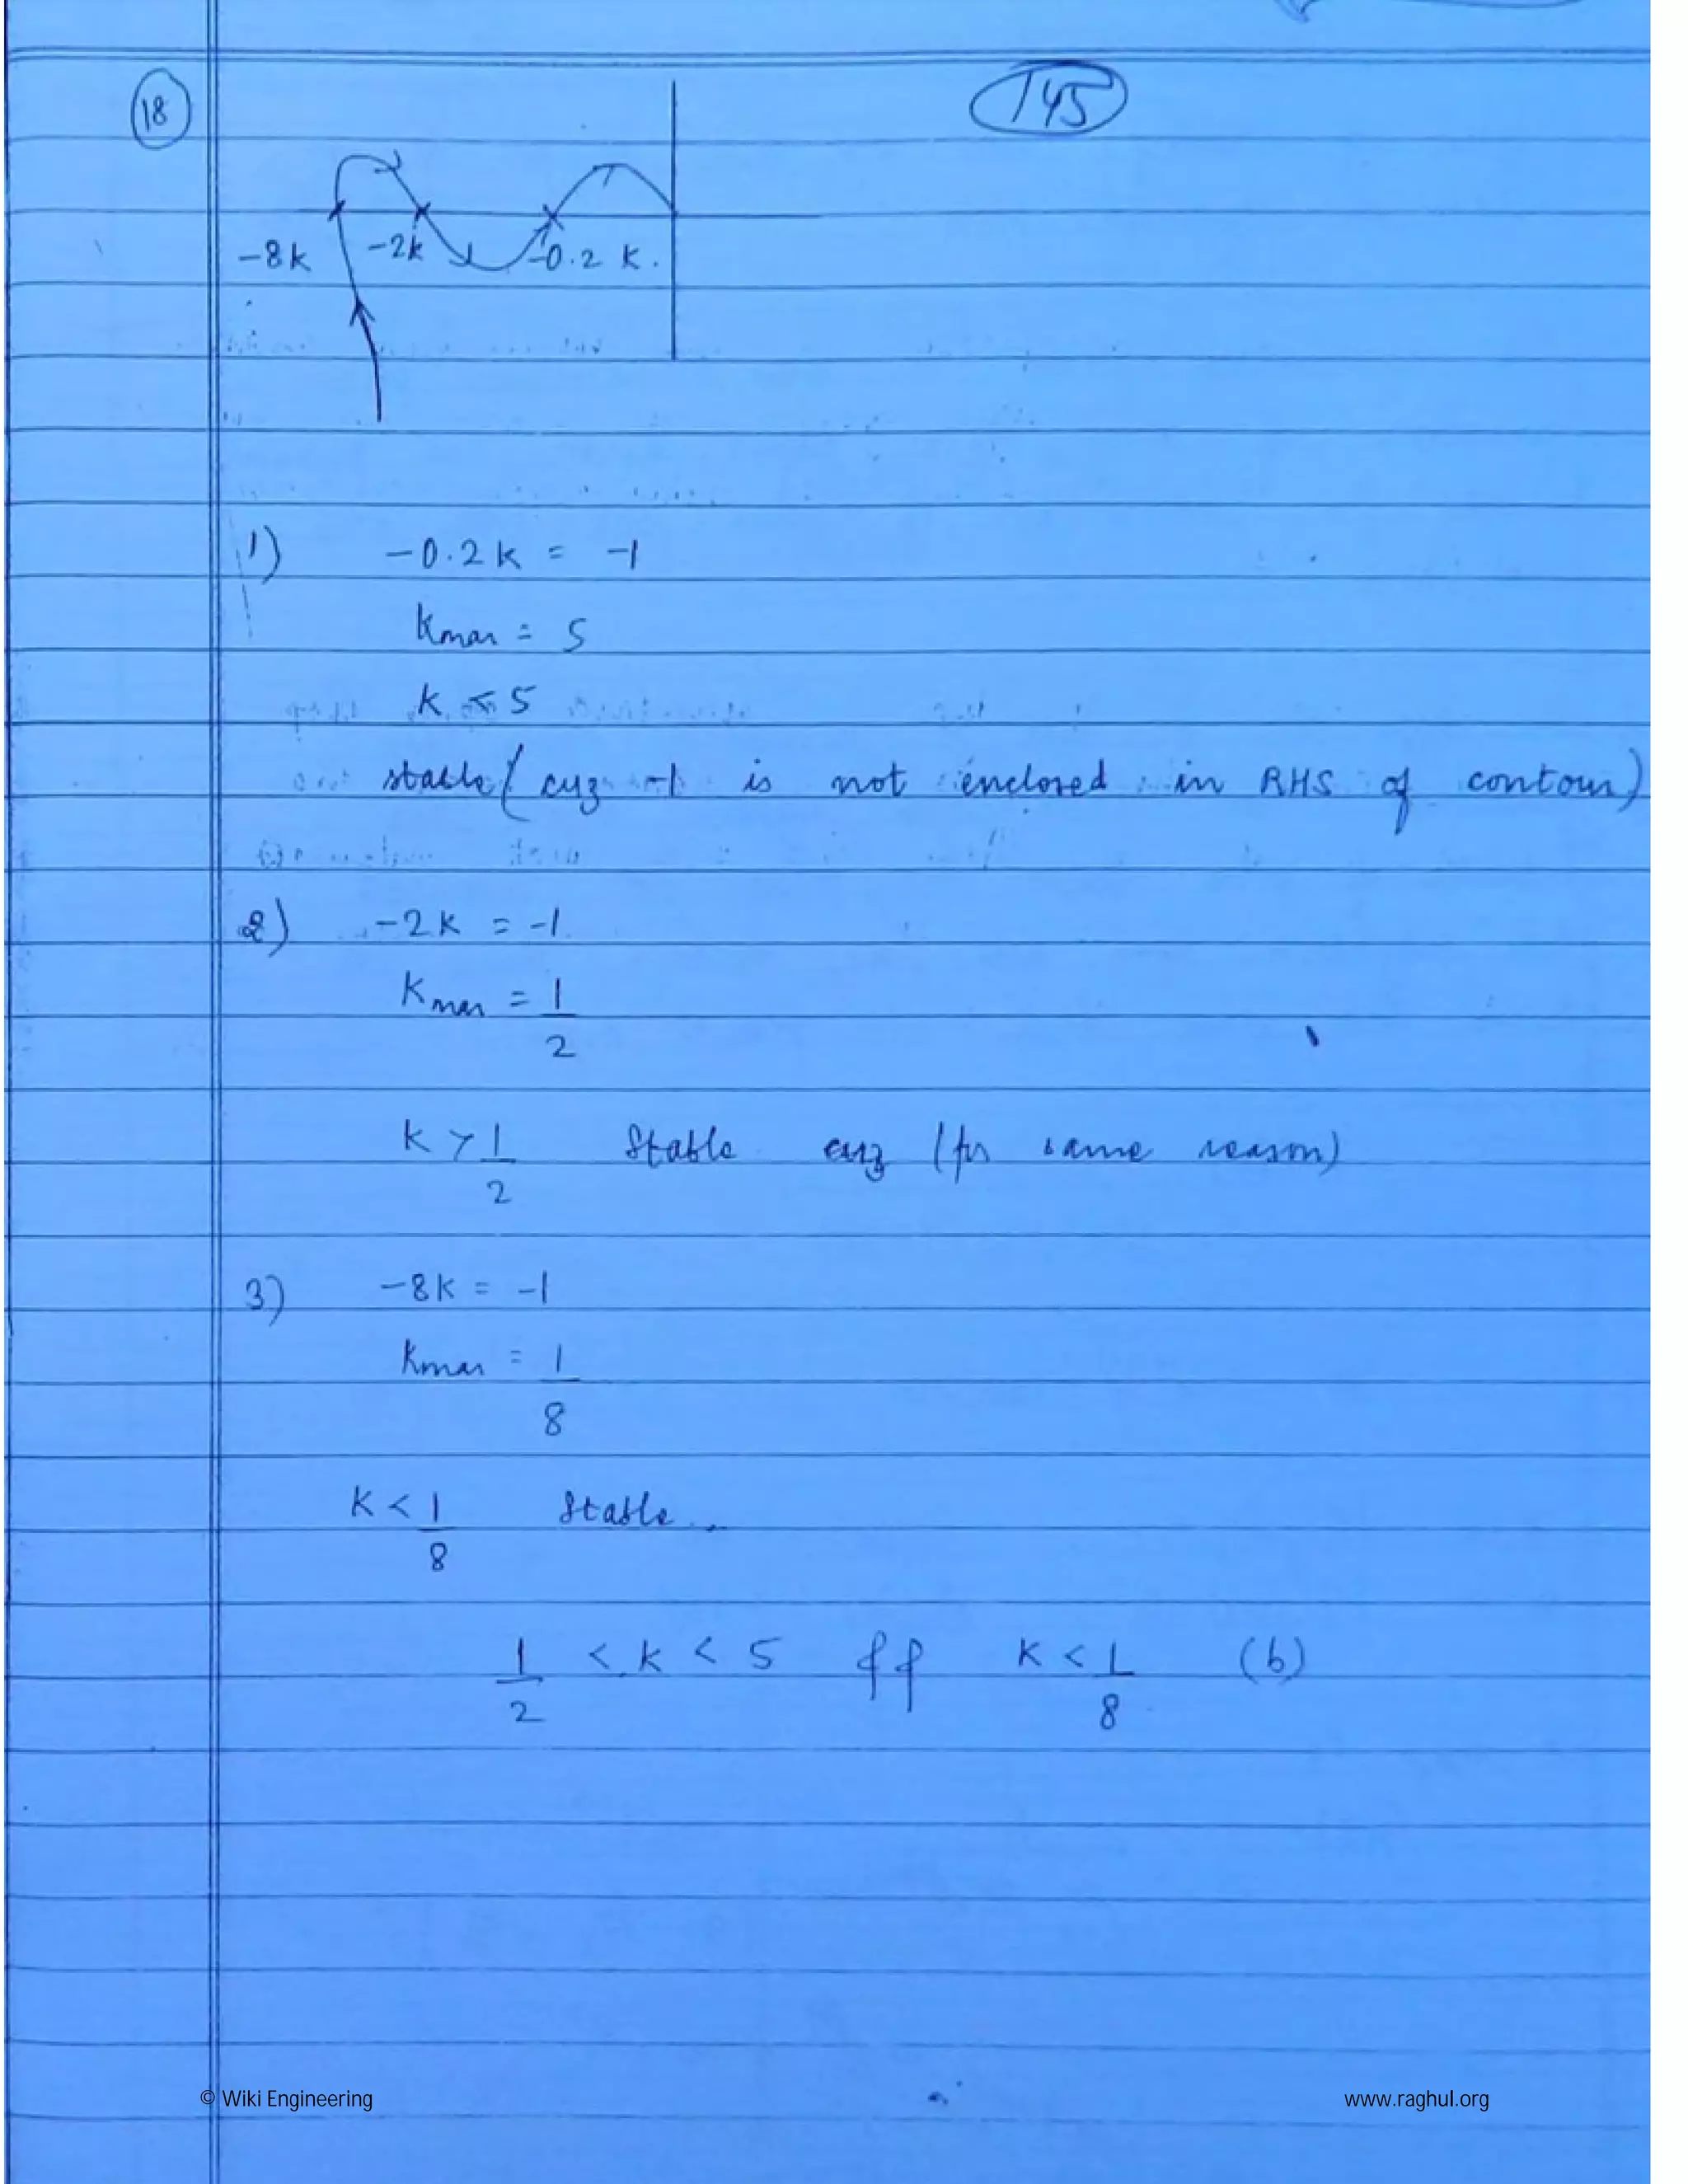 18
145
-8k -2k -0.2 k.
1) -0.2k = -1
kmax = 5
k < 5
stable (cuz -1 is not enclosed in RHS of contour)
2) -2k = -1
Kmax = 1/2
k > 1/2 stable cuz (for same reason)
3) -8k = -1
kmax = 1/8
K < 1/8 stable.
1/2 < k < 5 ff K < 1/8 (b)
© Wiki Engineering
www.raghul.org